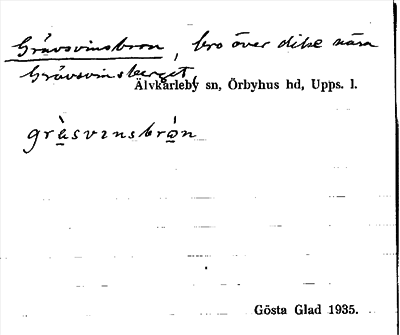 Grävsvinsbron, bro över dike nära
Grävsvinsberget,
Älvkarleby sn, Örbyhus hd, Upps. l.
grä̀svɪnsbrón
Gösta Glad 1935.